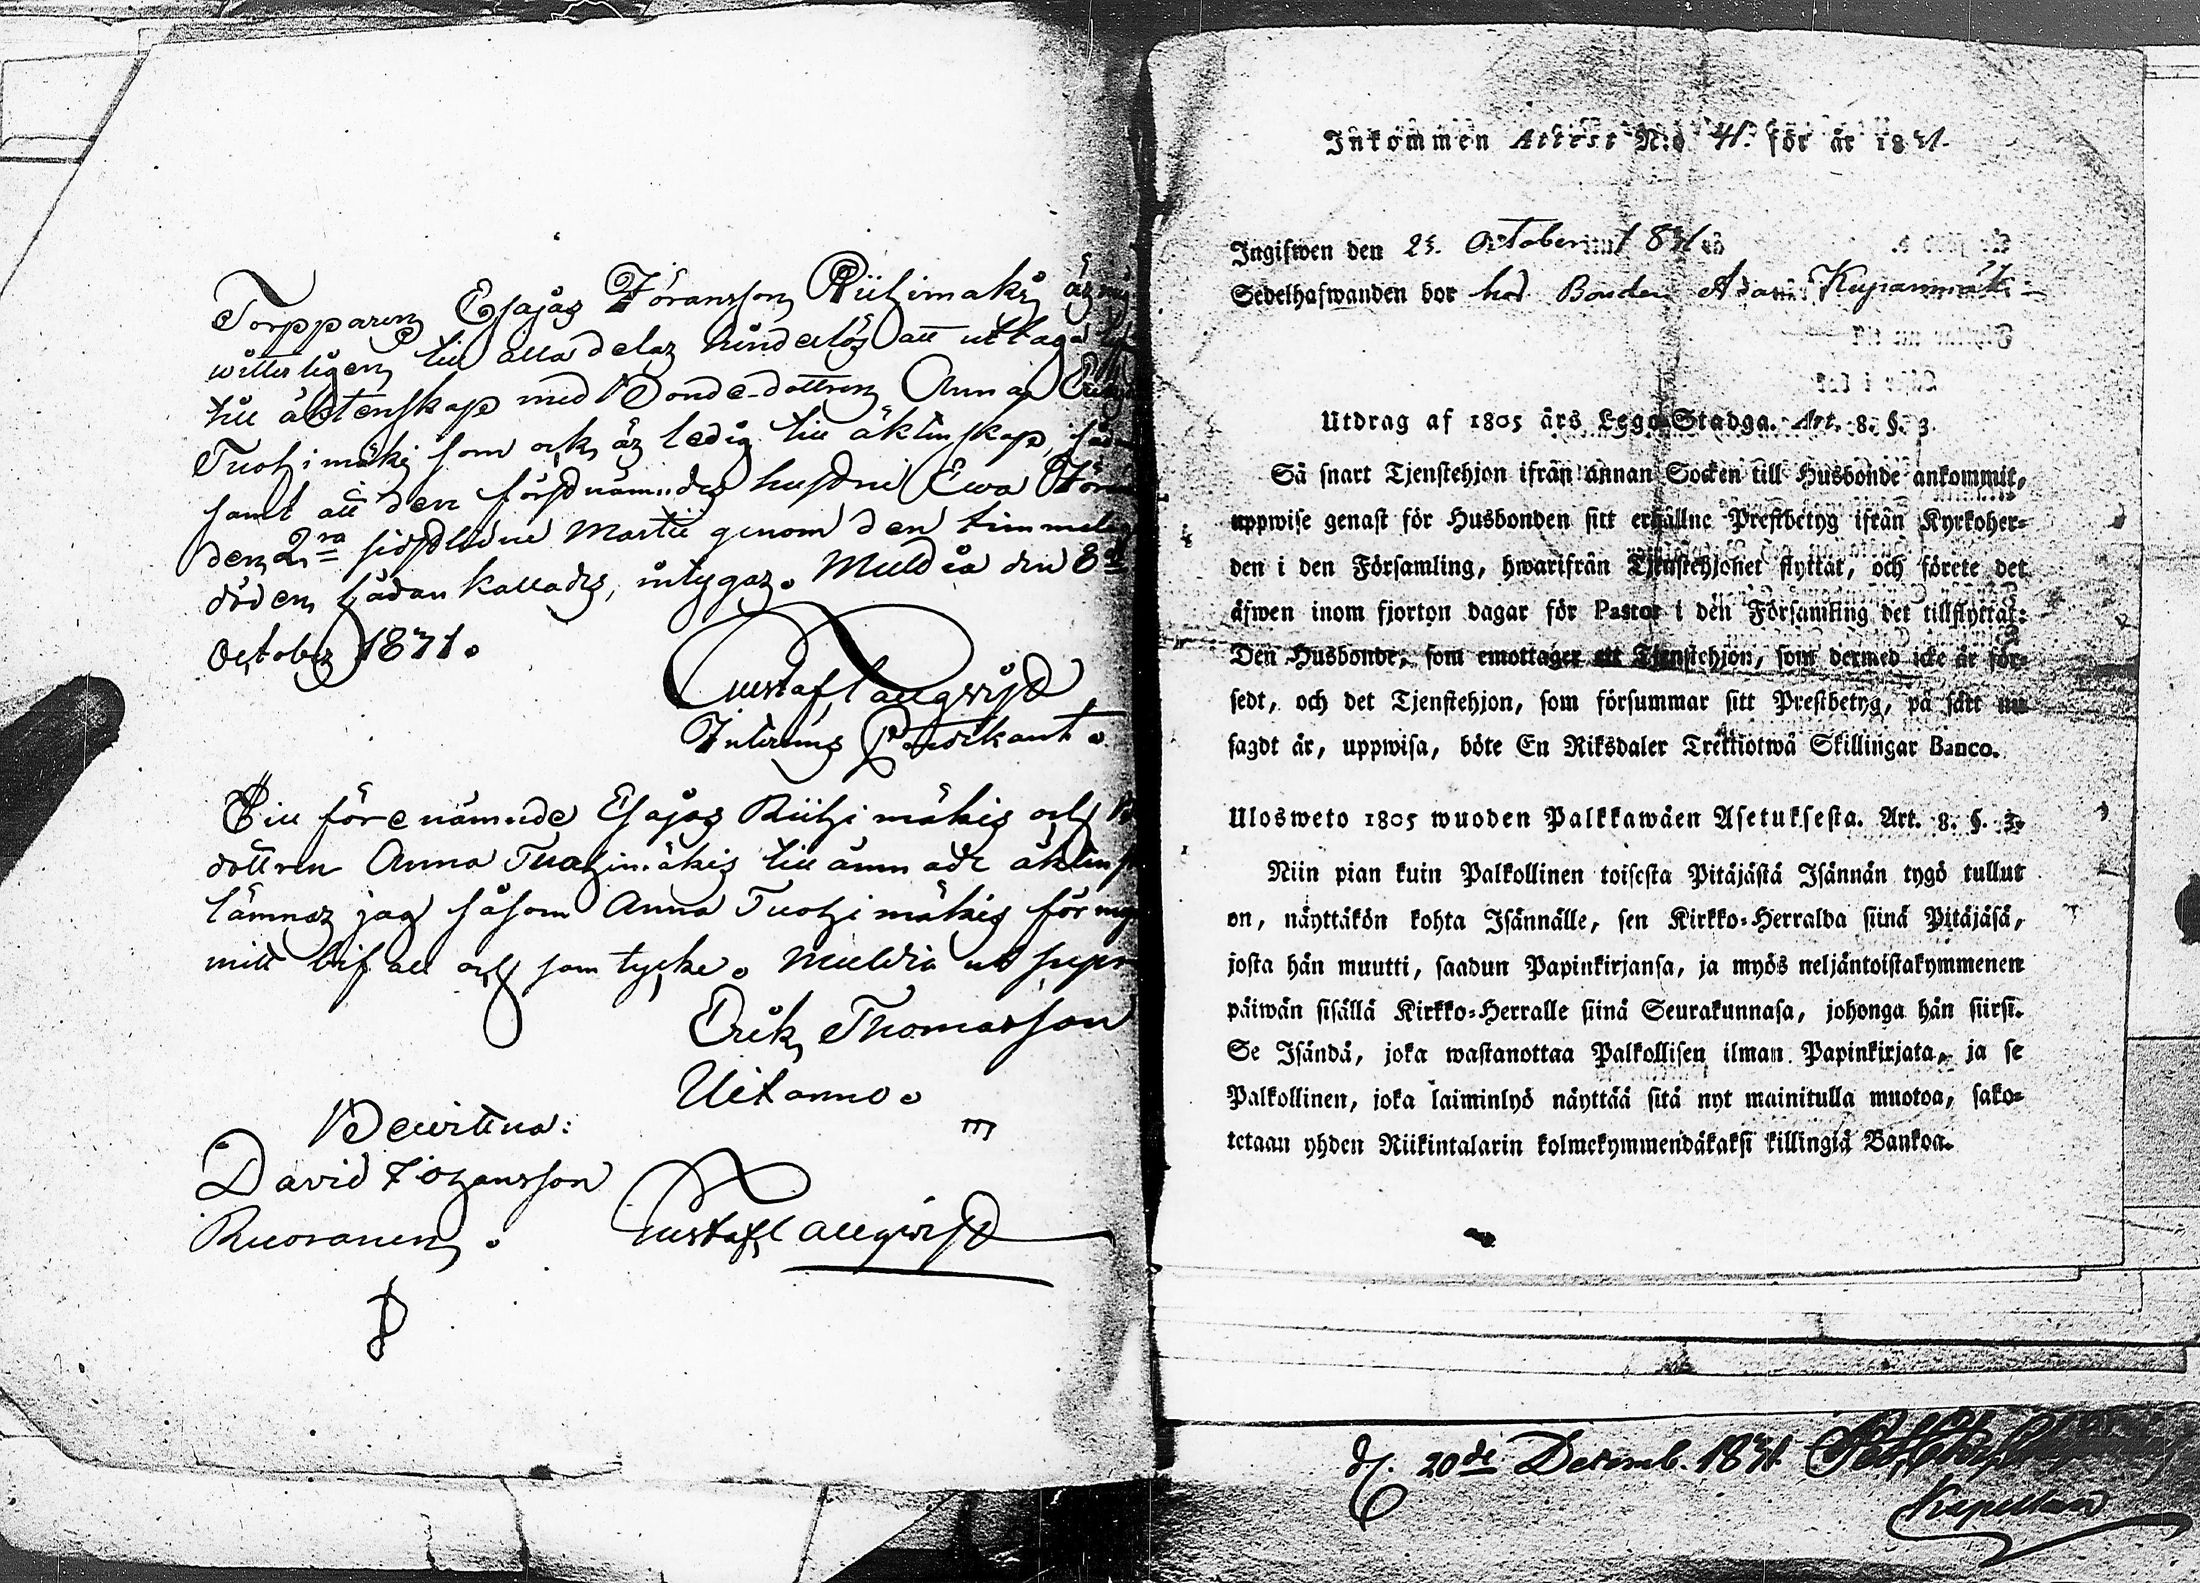 Torpparen Esajas Jöransson Riihimäki är mig
witterligen till alla delar hinderlös att uttaga
till äktenskap med Bonde-dottren Anna
Tuohimäki som ock är ledig till äktenskap,
samt att den förstnämndes hustru Ewa
den 2ra sistledne Martii genom den timmeliga
döden hädan kallades, intygar. Muldia den 8de
October 1871.
Gustaf Tallgvist
Interims Predikant.
Till förenämnde Esajas Riihimäkis och
dottren Anna Tuohimäkis tillämnade
lämnar jag såsom Anna Tuohimäkis
mitt bifall och samtycke. Muldia ut supra
Erik Thomasson
Uitamo.
Bewittna:
David Johansson
Ruoranen.
Gustaf Tallgvist
Inkommen Attest N:o 41. för år 18
Ingifwen den October
Sedelhafwanden bor hos Bonden Adam
Utdrag af 1805 års Lego-Stadga. Art. 8. §. 3.
Så snart Tjenstehjon ifrån annan Socken till Husbonde ankommit,
uppwise genast för Husbonden sitt erhållne Prestbetyg ifrån Kyrkoher-
den i den Församling, hwarifrån Tjenstehjonet flyttat, och förete det
äfwen inom fjorton dagar för Pastor i den Församling det tillflyttat:
Den Husbonde, som emottager ett Tjenstehjon, som dermed icke är för-
sedt, och det Tjenstehjon, som försummar sitt Prestbetyg, på sätt nu
sagdt är, uppwisa, böte En Riksdaler Trettiotwå Skillingar Banco.
Ulosweto 1805 wuoden Palkkawäen Asetuksesta. Art. 8. §. 3.
Niin pian kuin Palkollinen toisesta Pitäjästä Isännän tygö tullut
on, näyttäkön kohta Isännälle, sen Kirkko-Herralda siinä Pitäjäsä,
josta hän muutti, saadun Papinkirjansa, ja myös neljäntoistakymmenen
päiwän sisällä Kirkko-Herralle siinä Seurakunnasa, johonga hän siirsi.
Se Isändä, joka wastanottaa Palkollisen ilman Papinkirjata, ja se
Palkollinen, joka laiminlyö näyttää sitä nyt mainitulla muotoa, sako-
tetaan yhden Riikintalarin kolmekymmendäkaksi killingiä Bankoa.
d. 20de Decemb. 1871
Kapellan